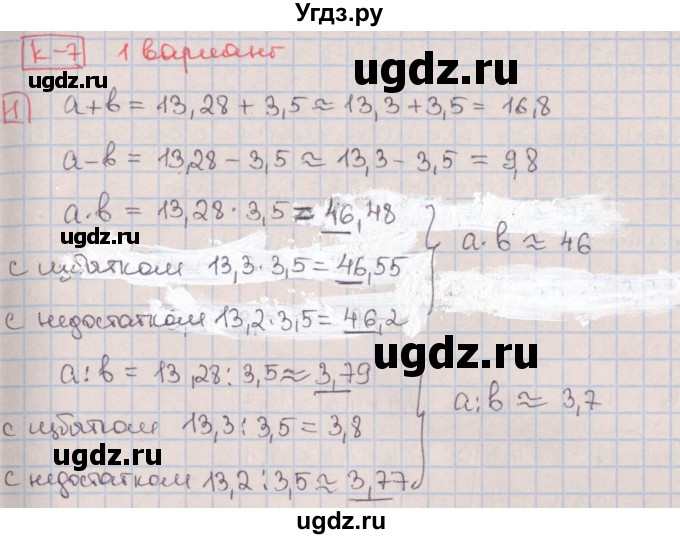 Угдз.ру
К-7 1 вариант
ugdz.ru
1 a+b = 13,28 + 3,5 ≈ 13,3 + 3,5 = 16,8
a-b = 13,28 - 3,5 ≈ 13,3 - 3,5 = 9,8
a·b = 13,28 · 3,5 = 46,48
a·b ≈ 46
ugdz.ru
ugdz.ru
с избытком 13,3 · 3,5 = 46,55
с недостатком 13,2 · 3,5 = 46,2
ugdz.ru
a:b = 13,28 : 3,5 ≈ 3,79
a:b ≈ 3,7
с избытком 13,3 : 3,5 = 3,8
ugdz.ru
с недостатком 13,2 : 3,5 ≈ 3,77
ugdz.ru
ugdz.ru